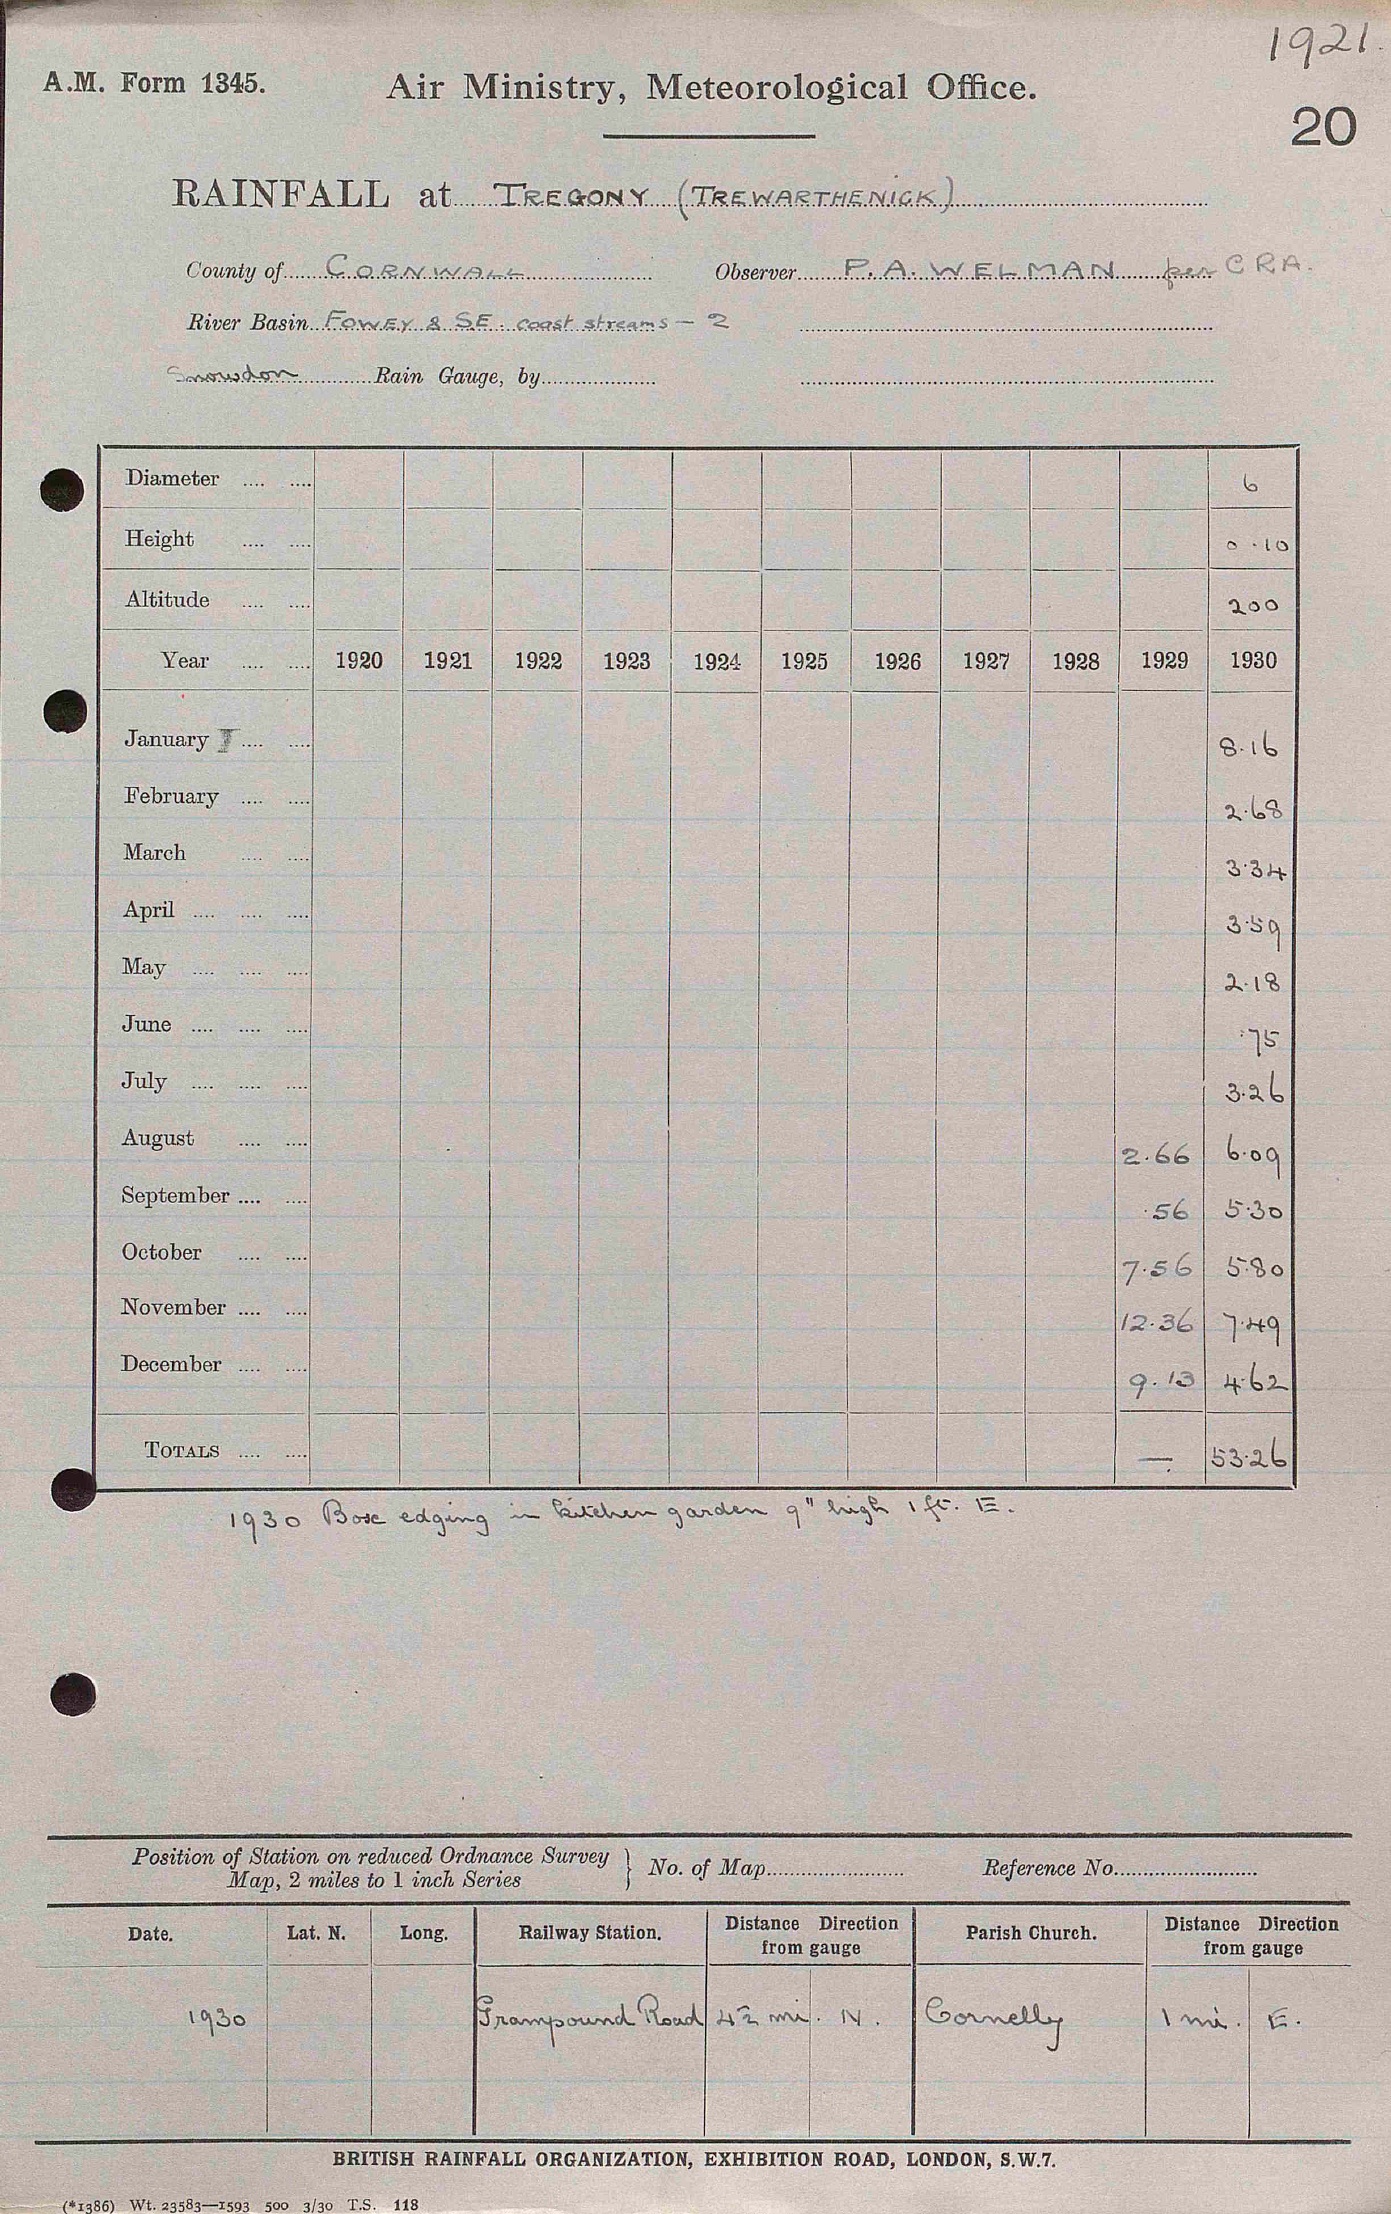 1921.
A.M. Form 1345. Air Ministry, Meteorological Office.
20
RAINFALL at TREGONY (TREWARTHENICK)
County of CORNWALL Observer P. A. WELMAN per C R A.
River Basin FOWEY & SE. coast streams - 2
Snowdon Rain Gauge, by
Diameter .... .... 6
Height .... .... 0.10
Altitude .... .... 200
Year .... .... 1920 1921 1922 1923 1924 1925 1926 1927 1928 1929 1930
January .... .... 8.16
February .... .... 2.68
March .... .... 3.34
April .... .... .... 3.59
May .... .... .... 2.18
June .... .... .... .75
July .... .... .... 3.26
August .... .... 2.66 6.09
September .... .... .56 5.30
October .... .... 7.56 5.80
November .... .... 12.36 7.49
December .... .... 9.13 4.62
TOTALS .... .... — 53.26
1930 Box edging in kitchen garden 9" high 1 ft. E.
Position of Station on reduced Ordnance Survey
Map, 2 miles to 1 inch Series } No. of Map Reference No.
Date. Lat. N. Long. Railway Station. Distance Direction from gauge Parish Church. Distance Direction from gauge
1930 Grampound Road 4½ mi. N. Cornelly 1 mi. E.
BRITISH RAINFALL ORGANIZATION, EXHIBITION ROAD, LONDON, S.W.7.
(*1386) Wt. 23583—1593 500 3/30 T.S. 118